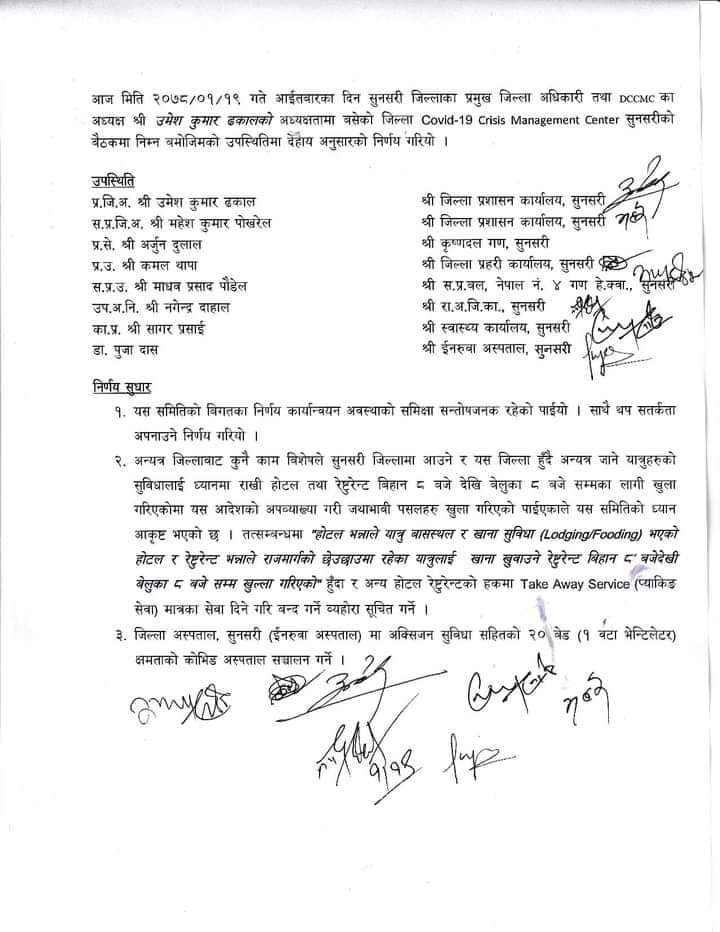 आज मिति २०७८/०१/१९ गते आईतवारका दिन सुनसरी जिल्लाका प्रमुख जिल्ला अधिकारी तथा DCCMC का
अध्यक्ष श्री उमेश कुमार ढकालको अध्यक्षतामा बसेको जिल्ला Covid-19 Crisis Management Center सुनसरीको
बैठकमा निम्न बमोजिमको उपस्थितिमा देहाय अनुसारको निर्णय गरियो ।
उपस्थिति
प्र.जि.अ. श्री उमेश कुमार ढकाल श्री जिल्ला प्रशासन कार्यालय, सुनसरी
स.प्र.जि.अ. श्री महेश कुमार पोखरेल श्री जिल्ला प्रशासन कार्यालय, सुनसरी
प्र.से. श्री अर्जुन दुलाल श्री कृष्णदल गण, सुनसरी
प्र.उ. श्री कमल थापा श्री जिल्ला प्रहरी कार्यालय, सुनसरी
स.प्र.उ. श्री माधव प्रसाद पौडेल श्री स.प्र.वल, नेपाल नं. ४ गण हे.क्वा., सुनसरी
उप.अ.नि. श्री नगेन्द्र दाहाल श्री रा.अ.जि.का., सुनसरी
का.प्र. श्री सागर प्रसाई श्री स्वास्थ्य कार्यालय, सुनसरी
डा. पुजा दास श्री ईनरुवा अस्पताल, सुनसरी
निर्णय सुधार
१. यस समितिको बिगतका निर्णय कार्यान्वयन अवस्थाको समिक्षा सन्तोषजनक रहेको पाईयो । साथै थप सतर्कता
अपनाउने निर्णय गरियो ।
२. अन्यत्र जिल्लाबाट कुनै काम विशेषले सुनसरी जिल्लामा आउने र यस जिल्ला हुँदै अन्यत्र जाने यात्रुहरुको
सुविधालाई ध्यानमा राखी होटल तथा रेष्टुरेन्ट बिहान ८ बजे देखि बेलुका ८ बजे सम्मका लागी खुला
गरिएकोमा यस आदेशको अपव्याख्या गरी जथाभाबी पसलहरु खुला गरिएको पाईएकाले यस समितिको ध्यान
आकृष्ट भएको छ । तत्सम्बन्धमा "होटल भन्नाले यात्रु बासस्थल र खाना सुविधा (Lodging/Fooding) भएको
होटल र रेष्टुरेन्ट भन्नाले राजमार्गको छेउछाउमा रहेका यात्रुलाई खाना खुवाउने रेष्टुरेन्ट बिहान ८ बजेदेखी
बेलुका ८ बजे सम्म खुल्ला गरिएको" हुँदा र अन्य होटल रेष्टुरेन्टको हकमा Take Away Service (प्याकिङ
सेवा) मात्रका सेवा दिने गरि बन्द गर्ने व्यहोरा सूचित गर्ने ।
३. जिल्ला अस्पताल, सुनसरी (ईनरुवा अस्पताल) मा अक्सिजन सुविधा सहितको २० वेड (१ वटा भेन्टिलेटर)
क्षमताको कोभिड अस्पताल सञ्चालन गर्ने ।